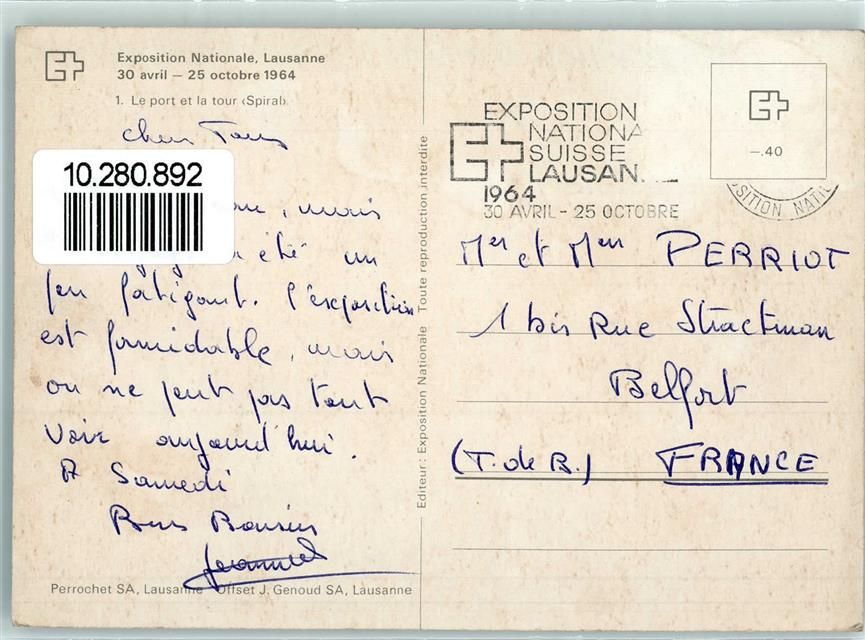 Exposition Nationale, Lausanne
30 avril – 25 octobre 1964
1. Le port et la tour ‹Spiral›
chers Tous
10.280.892
mais
été un
peu fatigant. l'exposition
est formidable, mais
on ne peut pas tout
voir aujourd'hui.
A Samedi
Bons Baisers
Perrochet SA, Lausanne Offset J. Genoud SA, Lausanne
Editeur: Exposition Nationale Toute reproduction interdite
EXPOSITION
NATIONA
SUISSE
LAUSAN
1964
30 AVRIL - 25 OCTOBRE
–.40
SITION NATI
Mr et Mme PERRIOT
1 bis Rue Stractman
Belfort
(T. de B.) FRANCE